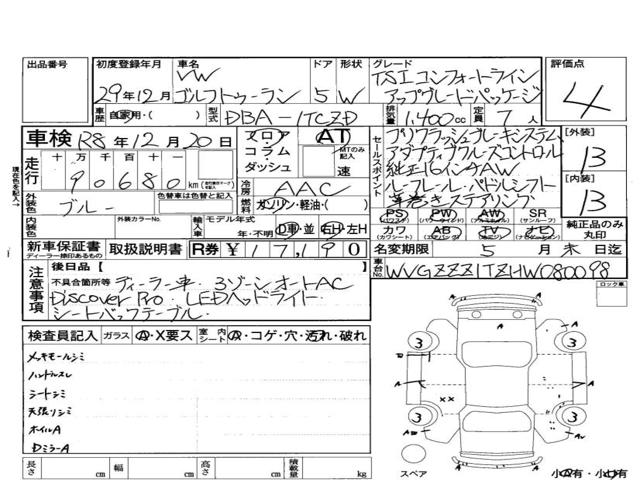 出品番号 初度登録年月 車名 ドア 形状 グレード 評価点
VW TSI コンフォートライン
29年12月 ゴルフトゥーラン 5 W アップグレードパッケージ 4
車歴 自家用・( ) 型式 DBA-1TCZD 排気量 1.400cc 定員 7人
車検 R8年12月20日 フロア AT セールスポイント プリクラッシュブレーキシステム [外装]
コラム MTのみ記入 アダプティブクルーズコントロール B
走行 十 万 千 百 十 一 ダッシュ 速 純正16インチAW
90680km 冷房 AAC ルーフレール・パドルシフト [内装]
外装色 ブルー 色替車は色替と記入 燃料 ガソリン・軽油・( ) 革巻きステアリング B
PS PW AW SR
(パワステ) (パワーウインド) (アルミホイール) (サンルーフ)
内装色 外装カラーNo. 輸入車 モデル年式 カワ AB TV ナビ 純正品のみ丸印
年・不明 D車・並 右H・左H (カワシート) (エアバッグ) (テレビ) (ナビゲーション)
新車保証書 取扱説明書 R券 ¥ 17,190 名変期限 5月末日迄
ディーラー捺印あるもの
後日品[ ] 車台No. WVGZZZ1TZHW080098
注意事項 不具合箇所等 ディーラー車・3ゾーンオートAC ロック車
Discover Pro・LEDヘッドライト・
シートバックテーブル・
検査員記入 ガラス A・X要ス 室内シート A・コゲ・穴・汚れ・破れ
メッキモールシミ
ハンドルスレ
シートシミ
天張りシミ
ホイルA
DミラーA
3 3
A A A
XX
3 3
A A
スペア 小A有・小U有
長さ cm 幅 cm 高さ cm 積載量 kg